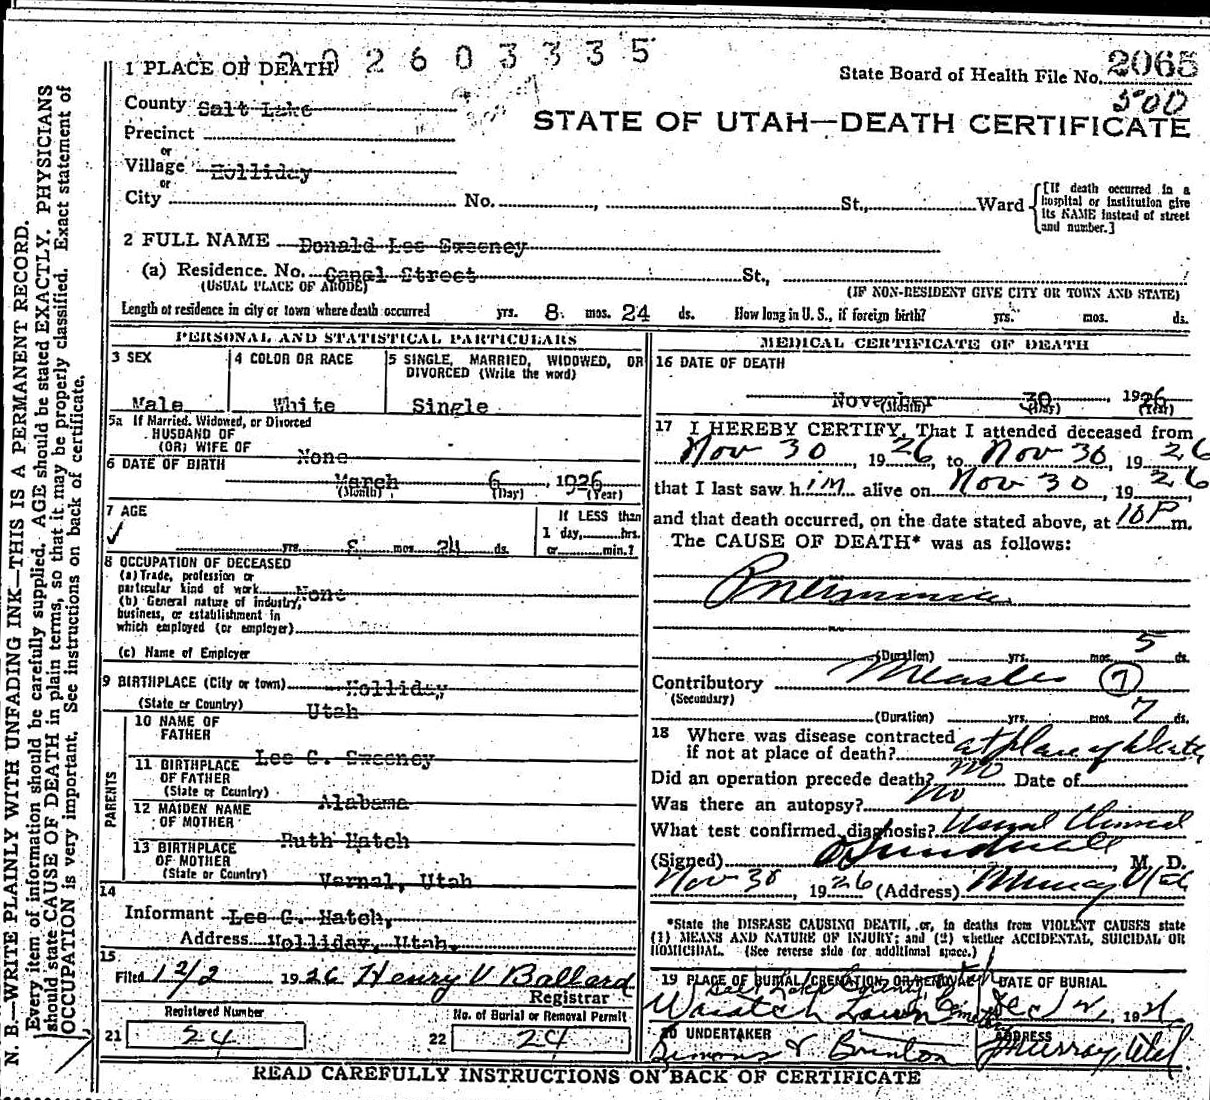 2603335
1 PLACE OF DEATH
State Board of Health File No. 2065
500
County Salt Lake
STATE OF UTAH—DEATH CERTIFICATE
Precinct
or
Village Holliday
or
City No. St., Ward
[If death occurred in a hospital or institution give its NAME instead of street and number.]
2 FULL NAME Donald Lee Sweeney
(a) Residence. No. Canal Street St.,
(USUAL PLACE OF ABODE) (IF NON-RESIDENT GIVE CITY OR TOWN AND STATE)
Length of residence in city or town where death occurred yrs. 8 mos. 24 ds. How long in U. S., if foreign birth? yrs. mos. ds.
PERSONAL AND STATISTICAL PARTICULARS
3 SEX
Male
4 COLOR OR RACE
White
5 SINGLE, MARRIED, WIDOWED, OR
DIVORCED (Write the word)
Single
5a If Married, Widowed, or Divorced
HUSBAND OF
(OR) WIFE OF None
6 DATE OF BIRTH
March 6, 1926
(Month) (Day) (Year)
7 AGE
If LESS than
1 day, hrs.
or min.?
yrs. 8 mos. 24 ds.
8 OCCUPATION OF DECEASED
(a) Trade, profession or
particular kind of work None
(b) General nature of industry,
business, or establishment in
which employed (or employer)
(c) Name of Employer
9 BIRTHPLACE (City or town) Holliday
(State or Country) Utah
PARENTS
10 NAME OF
FATHER
Lee C. Sweeney
11 BIRTHPLACE
OF FATHER
(State or Country)
Alabama
12 MAIDEN NAME
OF MOTHER
Ruth Hatch
13 BIRTHPLACE
OF MOTHER
(State or Country)
Vernal, Utah
14
Informant Lee G. Hatch,
Address Holliday, Utah.
15
Filed 12/2 1926 Henry V Ballard
Registrar
Registered Number
21 24
No. of Burial or Removal Permit
22 24
MEDICAL CERTIFICATE OF DEATH
16 DATE OF DEATH
November 30, 1926
(Month) (Day) (Year)
17 I HEREBY CERTIFY, That I attended deceased from
Nov 30, 1926, to Nov 30, 1926
that I last saw him alive on Nov 30, 1926
and that death occurred, on the date stated above, at 10 P m.
The CAUSE OF DEATH* was as follows:
Pneumonia
(Duration) yrs. mos. 5 ds.
Contributory Measles 7
(Secondary)
(Duration) yrs. mos. 7 ds.
18 Where was disease contracted
if not at place of death? at place of death
Did an operation precede death? no Date of
Was there an autopsy? no
What test confirmed diagnosis? Usual Clinical
(Signed) M. D.
Nov 30, 1926 (Address) Murray Utah
*State the DISEASE CAUSING DEATH, or, in deaths from VIOLENT CAUSES state
(1) MEANS AND NATURE OF INJURY; and (2) whether ACCIDENTAL, SUICIDAL OR
HOMICIDAL. (See reverse side for additional space.)
19 PLACE OF BURIAL, CREMATION, OR REMOVAL
Salt Lake County Utah
Wasatch Lawn
DATE OF BURIAL
Dec 2, 1926
20 UNDERTAKER
Simons & Brinton
ADDRESS
Murray, Utah
READ CAREFULLY INSTRUCTIONS ON BACK OF CERTIFICATE
N. B.—WRITE PLAINLY WITH UNFADING INK—THIS IS A PERMANENT RECORD.
Every item of information should be carefully supplied. AGE should be stated EXACTLY. PHYSICIANS
should state CAUSE OF DEATH in plain terms, so that it may be properly classified. Exact statement of
OCCUPATION is very important. See instructions on back of certificate.